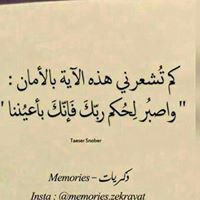 كم تُشعرني هذه الآية بالأمان :
" واصبُر لِحُكم ربّكَ فَإنّكَ بأعيُننا "
Taeser Snober
ذكريات – Memories
Insta : @memories.zekrayat